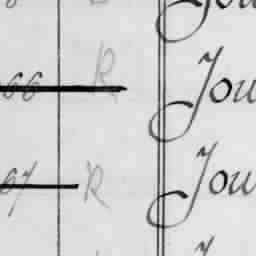 66 R Jou
67 R Jou